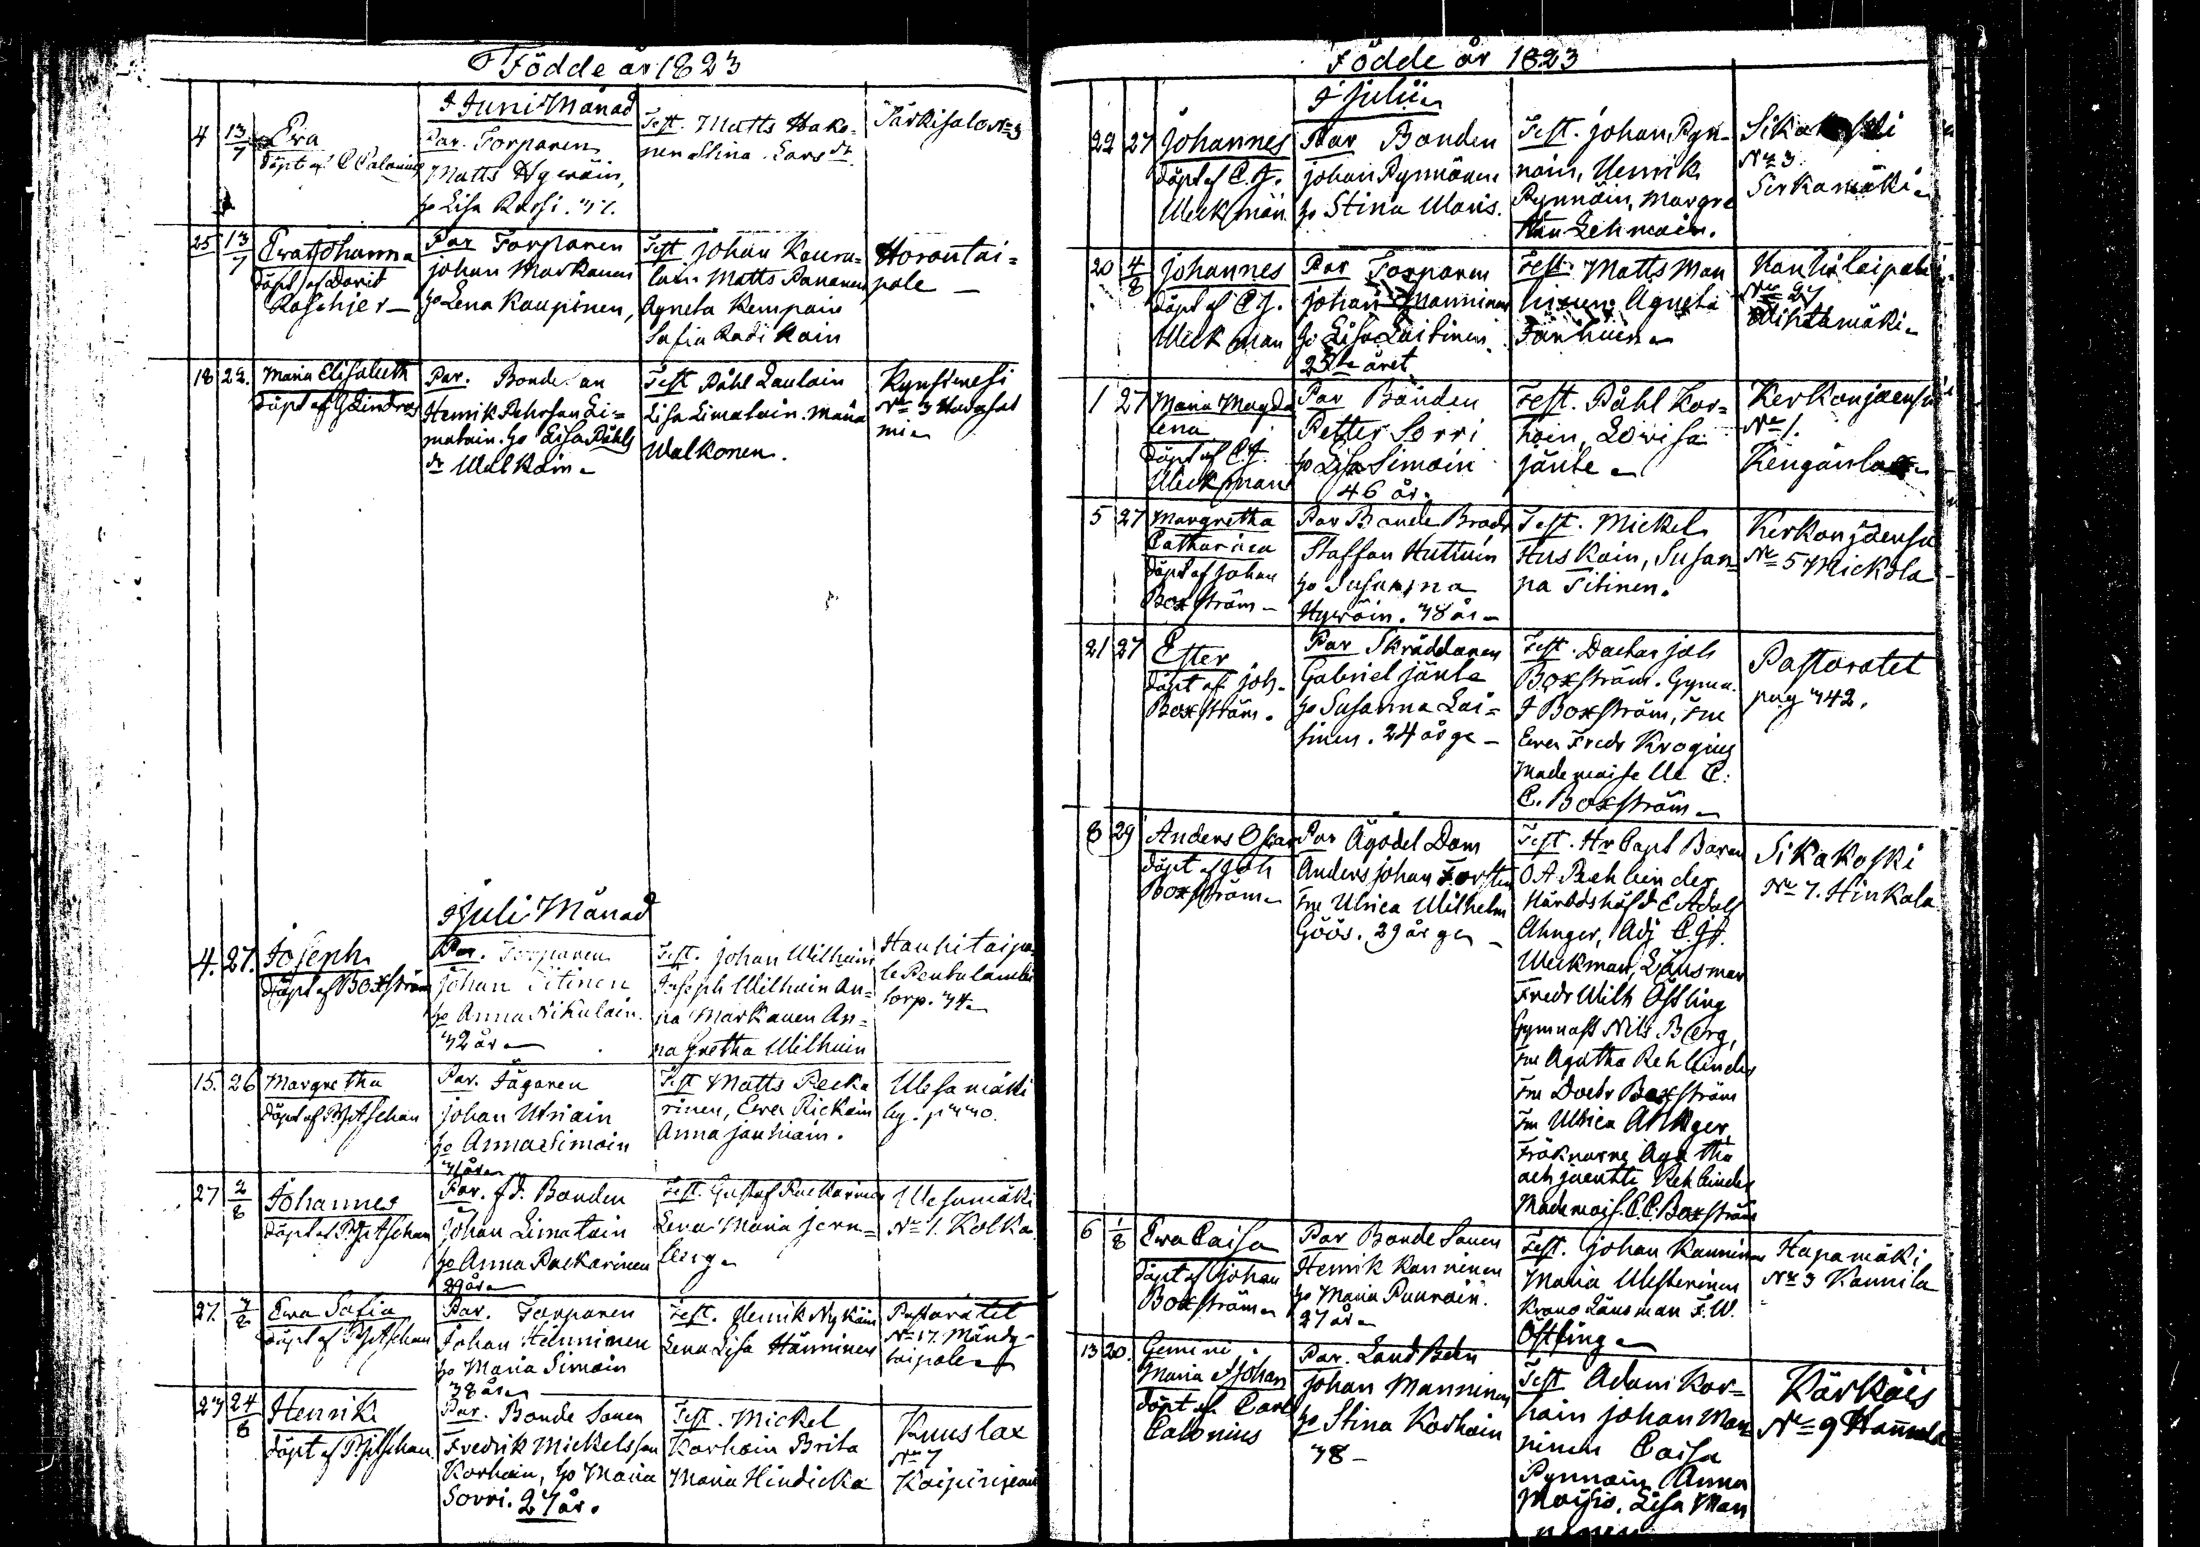 Födde år 1823
I Juni Månad
4 13/7 Eva
döpt af C Calonius
Par. Torparen
Matts Hywäin,
ho Lisa Rassi. 41.
Test. Matts Hako-
nen Stina Lars dr
Särkisalo No 3
25 13/7 Eva Johanna
döpt af David
Raschier
Par Torparen
Johan Markanen
ho Lena Kaupinen,
Test Johan Kaura-
lain Matts Pananen
Agneta Kempain
Safia Radikain
Horontai=
pale
18 22. Maria Elisabeth
döpt af G Lindros
Par. Bonde an
Henrik Pehrsan Li=
matain. ho Lisa Påhls
dr Walkain
Test Påhl Laulain
Lisa Limatain. Maria
Walkonen.
Kynsimesi
No 3
I Juli Månad
4. 27. Joseph
döpt af Boxström
Par. Torparen
Johan Titinen
ho Anna Nikulain.
42 år
Test. Johan Wilhuin
Joseph Wilhuin An=
na Markanen An=
na Gretha Wilhuin
Hauhitaipa
le Pentalambi
torp. 44
15. 26 Margretha
döpt af
Par. Jägaren
Johan Utriain
ho Anna Simoin
41 år
Test Matts Pecka
rinen, Ewa Rickoin
Anna Jantuain.
Ulosamäki
27 2/8 Johannes
döpt af
Par. fd. Bonden
Johan Limatain
ho Anna Packarinen
29 år
Test. Gustaf Packarinen
Lena Maria Jern=
berg
No 1. Kolka
27. 3/8 Ewa Safia
döpt af
Par. Torparen
Johan Hänninen
ho Maria Simoin
38 år
Test. Henrik Nykäin
Lena Lisa Hänninen
Pastoratet
No 17. Mändy-
taipale
27 24/8 Henrik
döpt af
Par. Bonde Sonen
Fredrik Mickelsson
Korhoin, ho Maria
Sorri. 27 år.
Test. Mickel
Korhoin Brita
Maria Hindicka
Kuuslax
No 7
Födde år 1823
I Julii
22 27 Johannes
döpt af C. J.
Weckman
Par Bonden
Johan Pynnönen
ho Stina Maris.
Test. Johan Pyn-
näin, Henrik
Pynnöin, Margre
tha Lehmoin.
Sikakoski
No 3
Sirkamäki
20 4/8 Johannes
döpt af C. J.
Weckman
Par Torparen
Johan Manninen
ho Lisa Laitinen
25te året
Test. Matts Man
ninen Agneta
Kauhitaipale
No 27
1 27 Maria Magda
lena
döpt af C. J.
Weckman
Par Bonden
Petter Sorri
ho Lisa Simoin
46 år.
Test. Påhl Kor=
hoin, Lowisa
Jänte
Kerkonjoensu
No 1.
Kengänlax
5 27 Margretha
Catharina
döpt af Johan
Boxström
Par Bonde Brodr
Staffan Huttuin
ho Susanna
Hywöin. 48 år
Test. Mickel
Huskoin, Susan=
na Titinen.
Kerkonjoensu
No 5 Mickola
21 27 Ester
döpt af Joh.
Boxström.
Par Skräddaren
Gabriel Jänte
ho Susanna Lai=
tinen. 24 år ge
Test. Doctor Joh
Boxström. Gymn.
J Boxström, Fru
Ewa Fredr Krogius
Mademoiselle C:
C. Boxström
Pastoratet
pag 442.
8 29 Anders Oscar
döpt af Joh
Boxström
Par Ägodel Dom
Anders Johan Forsten
Fru Ulrica Wilhelm
Göös. 29 år ge
Test. Hr Capt Baron
O A Rehbinder
Häradshöfd C Adolf
Ahnger, Adj C. Jf.
Weckman, Länsman
Fredr Wilh Östling
Gymnast Nils Berg,
Fru Agatha Rehbinder
Fru Doctr Boxström
Fru Ulrica Ahnger,
Fröknarne Agatha
och Jacobbi Rehbinder
Mademois. C. C. Boxström
Sikakoski
No 7. Hinkala
6 1/8 Ewa Caisa
döpt af Johan
Boxström
Par Bonde Sonen
Henrik Kanninen
ho Maria Puuroin.
27 år
Test. Johan Kanninen
Maria Westerinen
Krono Länsman F. W.
Östling
Hapamäki
No 3 Kannila
13 20. Gemini
Maria & Johan
döpt af Carl
Calonius
Par. Land Bdn
Johan Manninen
ho Stina Korhoin
48
Test Adam Kor=
hoin Johan Man
ninen Caisa
Pynnoin Anna
Moisio, Lisa Man
ninen
Kärkäis
No 9